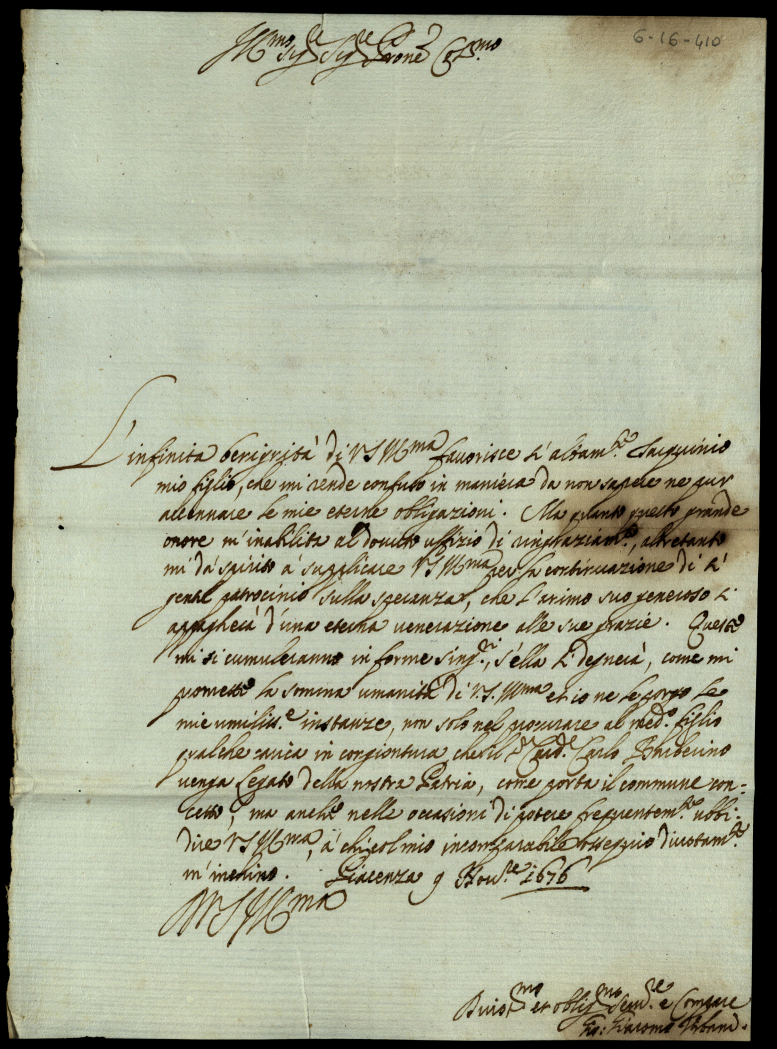 6-16-410
Ill.mo Sig.re Sig.re Prone Col.mo
L'infinita benignità di V S Ill.ma favorisce l'abbam.te
mio figlio, che mi rende confuso in maniera da non sapere ne pur
accennare le mie eterne obligazioni. Ma quanto questo grande
onore m'inabilita al dovuto uffizio di ringraziam.to, altretanto
mi dà spirito a supplicare V S Ill.ma per la continuazione di
patrocinio sulla speranza, che l'animo suo generoso
appagherà d'una eterna venerazione alle sue grazie. Queste
mi si cumuleranno in forme sing.ri, s'ella degnerà, come mi
promette la somma umanità di V.S. Ill.ma et io ne le porgo le
mie umiliss.e instanze, non solo nel procurare al med.o figlio
qualche carica in congiontura che il S.r Card. Carlo Barberino
venga Legato della nostra Patria, come porta il commune con=
cetto, ma anche nelle occasioni di potere frequentem.te ubbi=
dire V S Ill.ma, à chi col mio incomparabile ossequio divotam.te
m'inchino. Piacenza 9 Nov.re 1676
D V S Ill.ma
Divot.mo et oblig.mo Serv.re e Compare
Gio: Giacomo